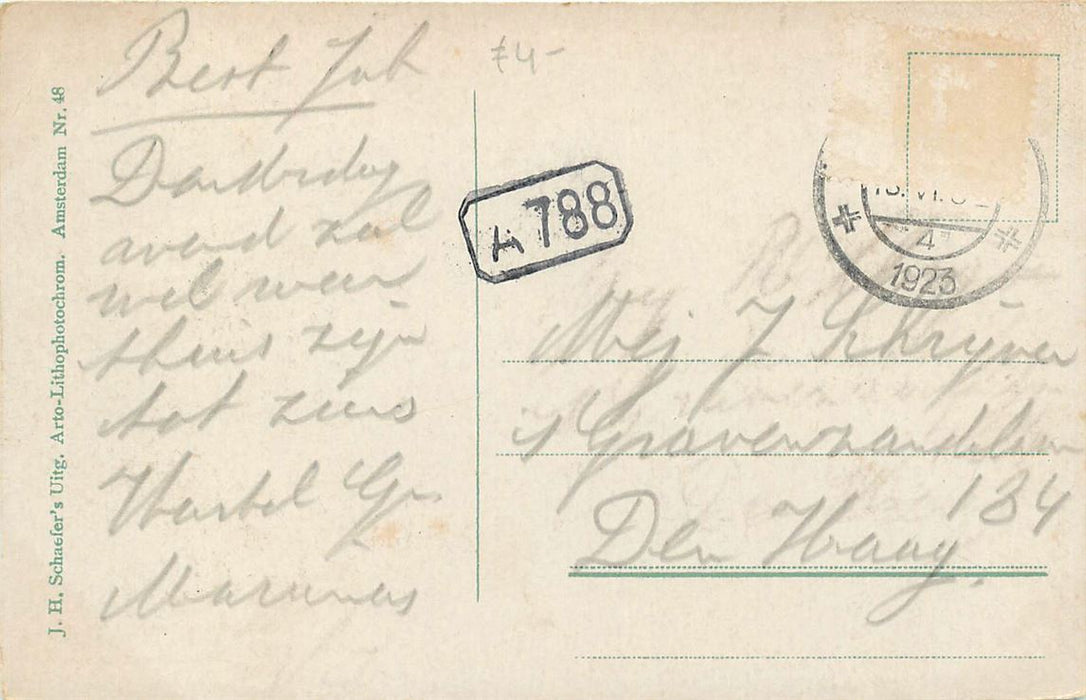 J. H. Schaefer's Uitg. Arto-Lithophotochrom. Amsterdam Nr. 48
Best
Donderdag
avond zal
wel weer
thuis zijn
tot ziens
Hartel Gr
Marinus
£4-
A 788
4
1923
Mej J Schrijver
's Gravenzandelaan
134
Den Haag.